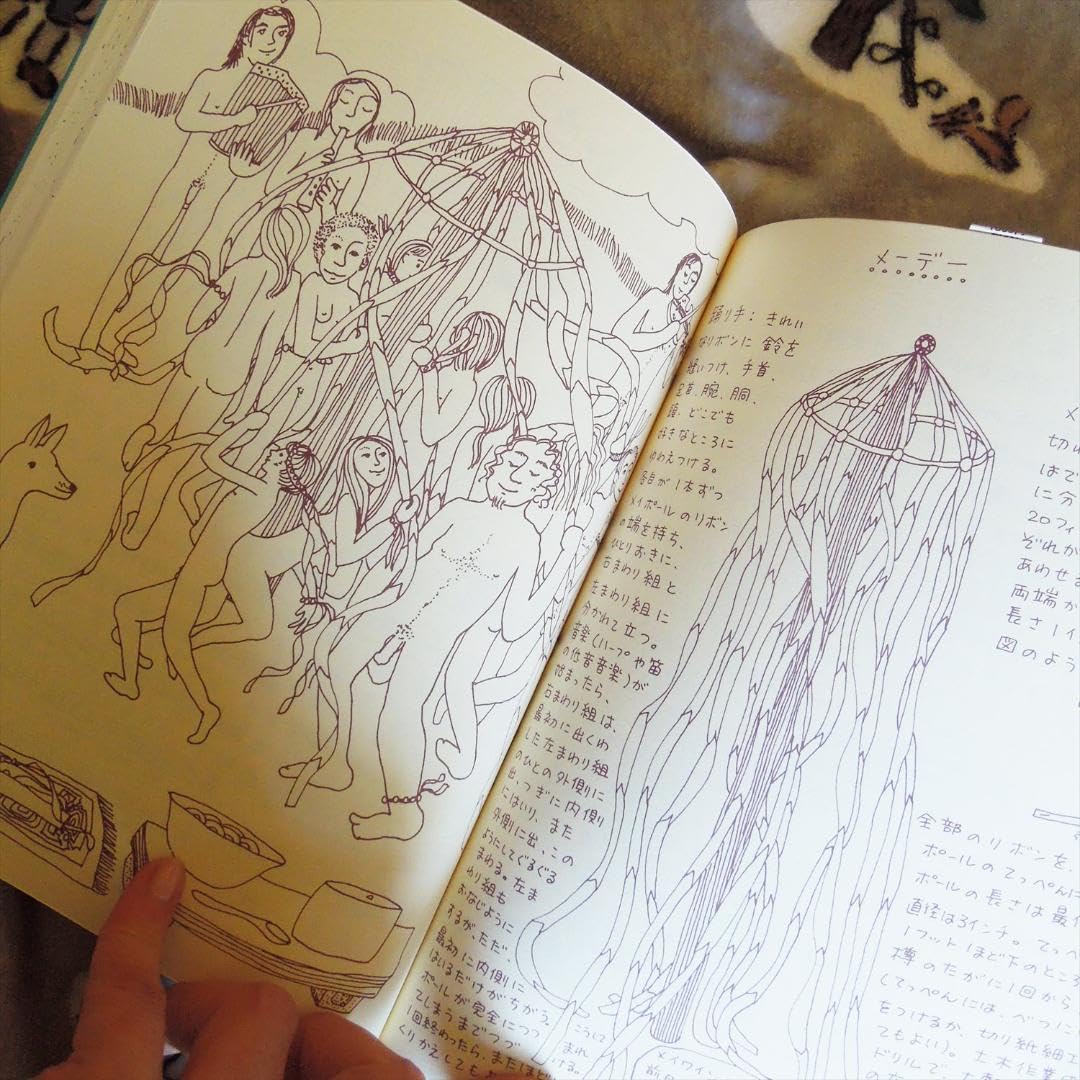 メーデー
踊り手: きれい
なリボンに 鈴を
縫いつけ、手首、
足首、腕、胴、
頭、どこでも
好きなところに
ゆわえつける。
各自が1本ずつ
メイポールのリボン
の端を持ち、
ひとりおきに、
右まわり組と
左まわり組に
分かれて立つ。
音楽(ハープや笛
の低音音楽)が
始まったら、
右まわり組は、
最初に出くわ
した左まわり組
のひとの外側に
出、つぎに内側
にはいり、また
外側に出、この
ようにしてぐるぐる
まわる。左ま
わり組も
おなじように
するが、ただ、
最初に内側に
はいるだけがちがう。
ポールが完全につつ
まれ
てしまうまでつづ
ける。
1回終わったら、またほど
くりかえしても
切
はで
に分
20フィ
ぞれが
あわせ
両端が
長さ1イ
図のよう
全部のリボンを、
ポールのてっぺんに
ポールの長さは最
直径は3インチ。てっぺ
1フットほど下のところ
樽のたがに1回から
してっぺんには、べつに
をつけるか、切り紙細工
てもよい)。土木作業の
ドリルで、
メイワイン
前